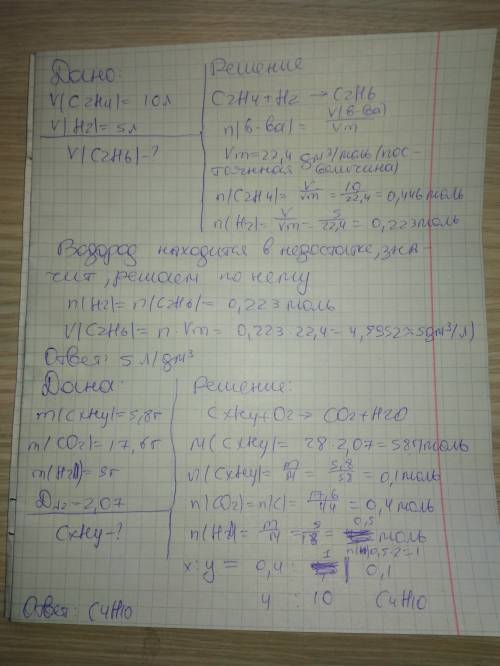 Дано:
V(C2H4)= 10л
V(H2)= 5л
V(C2H6)-?
Решение
C2H4+H2 → C2H6
n(в-ва)= V(в-ва)/Vm
Vm=22,4 дм³/моль (пос-
тоянная величина)
n(C2H4)= V/Vm = 10/22,4 = 0,446моль
n(H2)= V/Vm = 5/22,4 = 0,223моль
Водород находится в недостатке, зна-
чит, решаем по нему
n(H2)= n(C2H6)= 0,223моль
V(C2H6)= n·Vm= 0,223·22,4= 4,9952≈5дм³(л)
Ответ: 5 л/дм³
Дана:
m(CxHy)=5,8г
m(CO2)=17,6г
m(H2)= 5г
D =2,07
CxHy-?
Решение:
CxHy+O2→ CO2+H2O
M(CxHy)= 28·2,07=58г/моль
n(CxHy)= m/M = 5,8/58 = 0,1моль
n(CO2)=n(C)= 17,6/44 = 0,4моль
n(H)= m/M = 5/18 = 0,5 моль
n(H)0,5·2=1
x:y = 0,4 : 1 | 0,1
4 : 10 C4H10
Ответ: C4H10